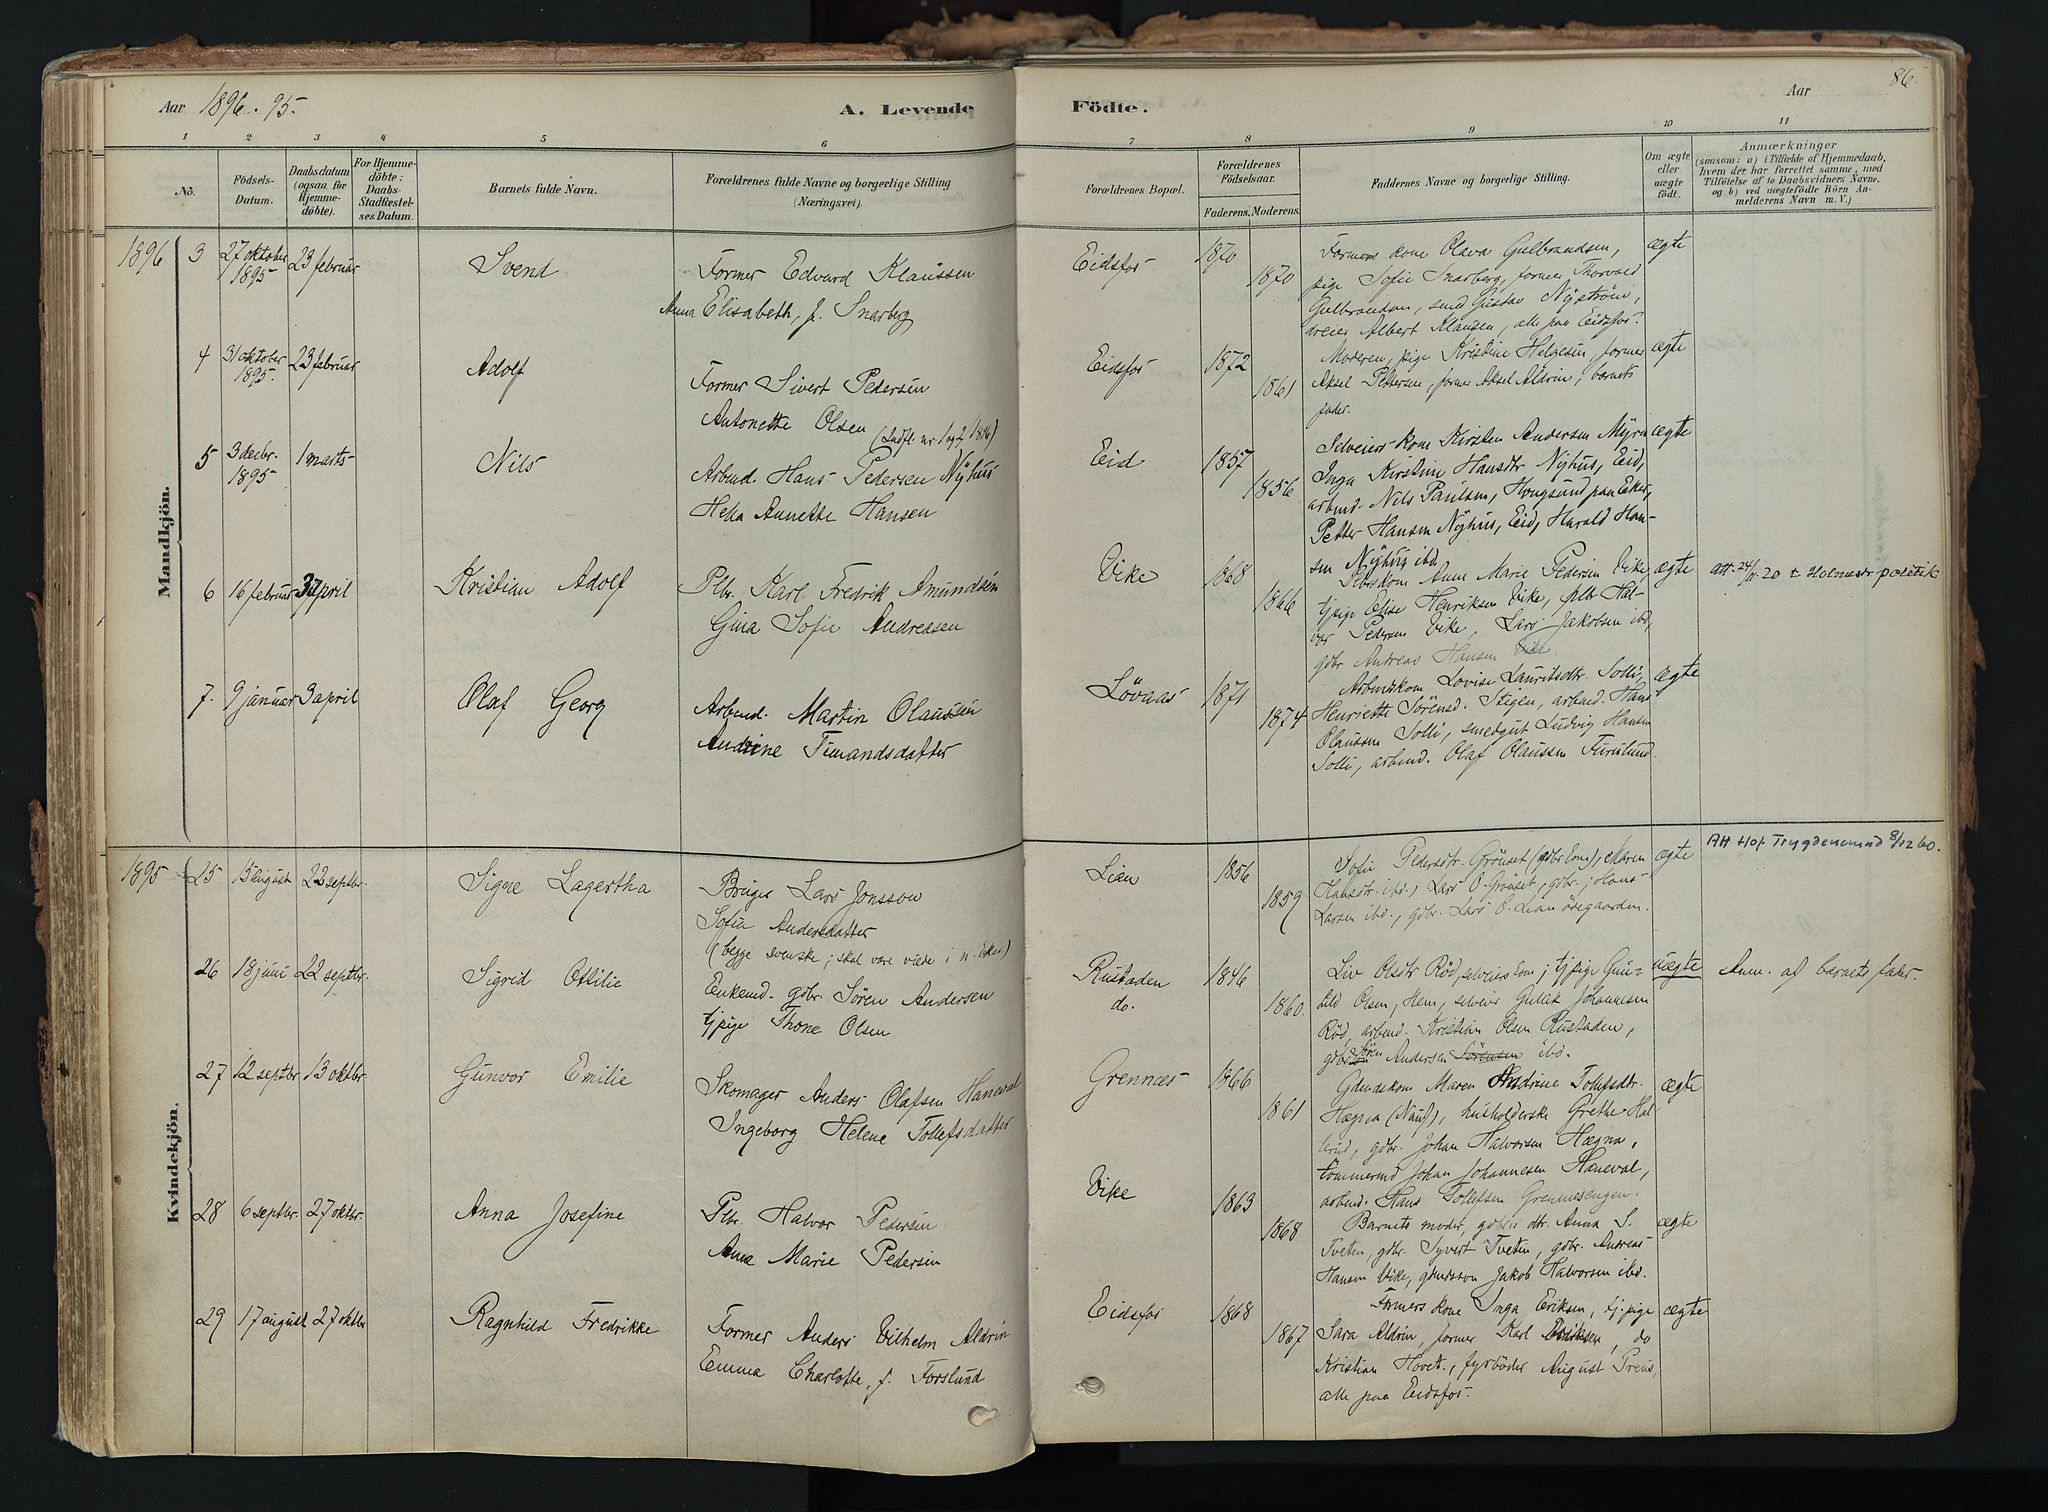 Aar 1896. 95.
A. Levende
Födte.
Aar
86.
1 2 3 4 5 6 7 8 9 10 11
No.
Födsels-
Datum.
Daabsdatum
(ogsaa for
Hjemme-
döbte).
For Hjemme-
döbte:
Daabs-
Stadfæstel-
ses Datum.
Barnets fulde Navn.
Forældrenes fulde Navne og borgerlige Stilling
(Næringsvei).
Forældrenes Bopæl.
Forældrenes
Födselsaar.
Faderens. Moderens.
Faddernes Navne og borgerlige Stilling.
Om ægte
eller
uægte
födt.
Anmærkninger
(saasom: a) i Tilfælde af Hjemmedaab,
hvem der har forrettet samme, med
Tilföielse af to Daabsvidners Navne.
og b) ved uægtefödte Börn An-
melderens Navn m. V.)
Mandkjön.
1896 3 27 oktober
1895 23 februar
Svend
Former Edvard Klaussen
Anna Elisabeth, f. Snarberg
Eidsfos 1870
1870
Formers kone Olava Gulbrandsen,
pige Sofie Snarberg, former Thorvald
Gulbrandsen, smed Gustav Nyström,
dreier Albert Klausen, alle paa Eidsfos.
ægte
4 31 oktober
1895. 23 februar
Adolf
Former Sivert Pedersen
Antonette Olsen (Indfl. nr. 1 og 2 1896)
Eidsfos 1872
1861
Moderen, pige Kristine Helgesen, former
Aksel Pettersen, former Aksel Aldrin, barnets
fader.
ægte
5 3 decbr.
1895 1 marts
Nils
Arbmd. Hans Pedersen Nyhus
Helia Annette Hansen
Eid 1857
1856
Selveiers kone Kirsten Andersen Myra
Inga Kirstine Hansdtr Nyhus, Eid,
arbmd. Nils Paulsen, Hougsund paa Eker,
Petter Hansen Nyhus, Eid, Harald Han-
sen Nyhus ibd.
ægte
6 16 februar 3 april
Kristian Adolf
Plbr. Karl Fredrik Amundsen
Gina Sofie Andreasen
Vike 1868
1866
Plbrs kone Anne Marie Pedersen Vike,
tjpige Elise Henriksen Vike, plbr Hal-
vor Pedersen Vike, Lars Jakobsen ibd,
gdbr Andreas Hansen Vike.
ægte
att. 24/11 20 t Holmestr politik
7. 9 januar 3 april
Olaf Georg
Arbmd. Martin Olaussen
Andrine Timandsdatter
Lövaas 1871
1874
Arbmdskone Lovise Lauritsdtr. Solli,
Henriette Sörensd. Stigen, arbmd. Hans
Olaussen Solli, smedgut Ludvig Hansen
Solli, arbmd. Olaf Olaussen Furulund.
ægte
Kvindekjön.
1895 25 15 august 22 septbr.
Signe Lagertha
Bruger Lars Jonsson
Sofie Andersdatter
(begge svenske; skal være viede i n. Eker)
Lian 1856
1859
Sofie Pedersdtr. Grönset (gdbr kone), Maren
Hansdtr. ibd., Lars O. Grönset, gdbr. Hans
Larsen ibd., gdbr. Lars O. Lian ödegaarden.
ægte
Att Hof Trygdenemnd 8/12 60.
26 18 juni 22 septbr.
Sigrid Ottilie
Enkemd. gdbr. Sören Andersen
tjpige Thone Olsen
Rustaden
do.
1846
1860.
Liv Olsdtr Röd, selveiers kone; tjpige Gun-
hild Olsen, Hem, selveier Gullik Johannesen
Röd, arbmd. Kristian Olsen Rustaden,
gdbr. Sören Andersen Sörensen ibd.
uægte
Anm. af barnets fader.
27 12 septbr 13 oktbr.
Gunvor Emilie
Skomager Anders Olafsen Haneval
Ingeborg Helene Tollefsdatter
Grennæs 1866
1861
Gdmdskone Maren Andrine Tollefsdtr.
Hægna (Nauf), husholderske Grethe Hal-
lerud, gdbr. Johan Halvorsen Hægna,
tömmermd Johan Johannesen Haneval,
arbmd. Hans Tollefsen Grennæsengen.
ægte
28 6 septbr. 27 oktbr.
Anna Josefine
Plbr. Halvor Pedersen
Anne Marie Pedersen
Vike 1863
1868
Barnets moder, gdbrs dtr. Anna S.
Tveten, gdbr. Syvert Tveten, gdbr. Andreas
Hansen Vike, gdmdssön Jakob Halvorsen ibd.
ægte
29 17 august 27 oktbr
Ragnhild Fredrikke
Former Anders Vilhelm Aldrin
Emma Charlotte, f. Forslund
Eidsfos 1868
1867
Formers kone Inga Eriksen, tj.pige
Sara Aldrin, former Karl Eriksen, do
Kristian Hovet., fyrböder August Preus,
alle paa Eidsfos.
ægte